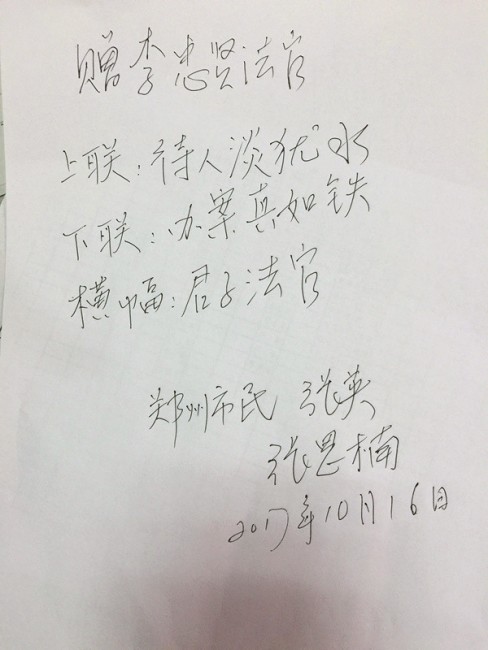 赠李忠贤法官
上联:待人淡犹水
下联:办案真如铁
横幅:君子法官
郑州市民 张英
张恩楠
2017年10月16日